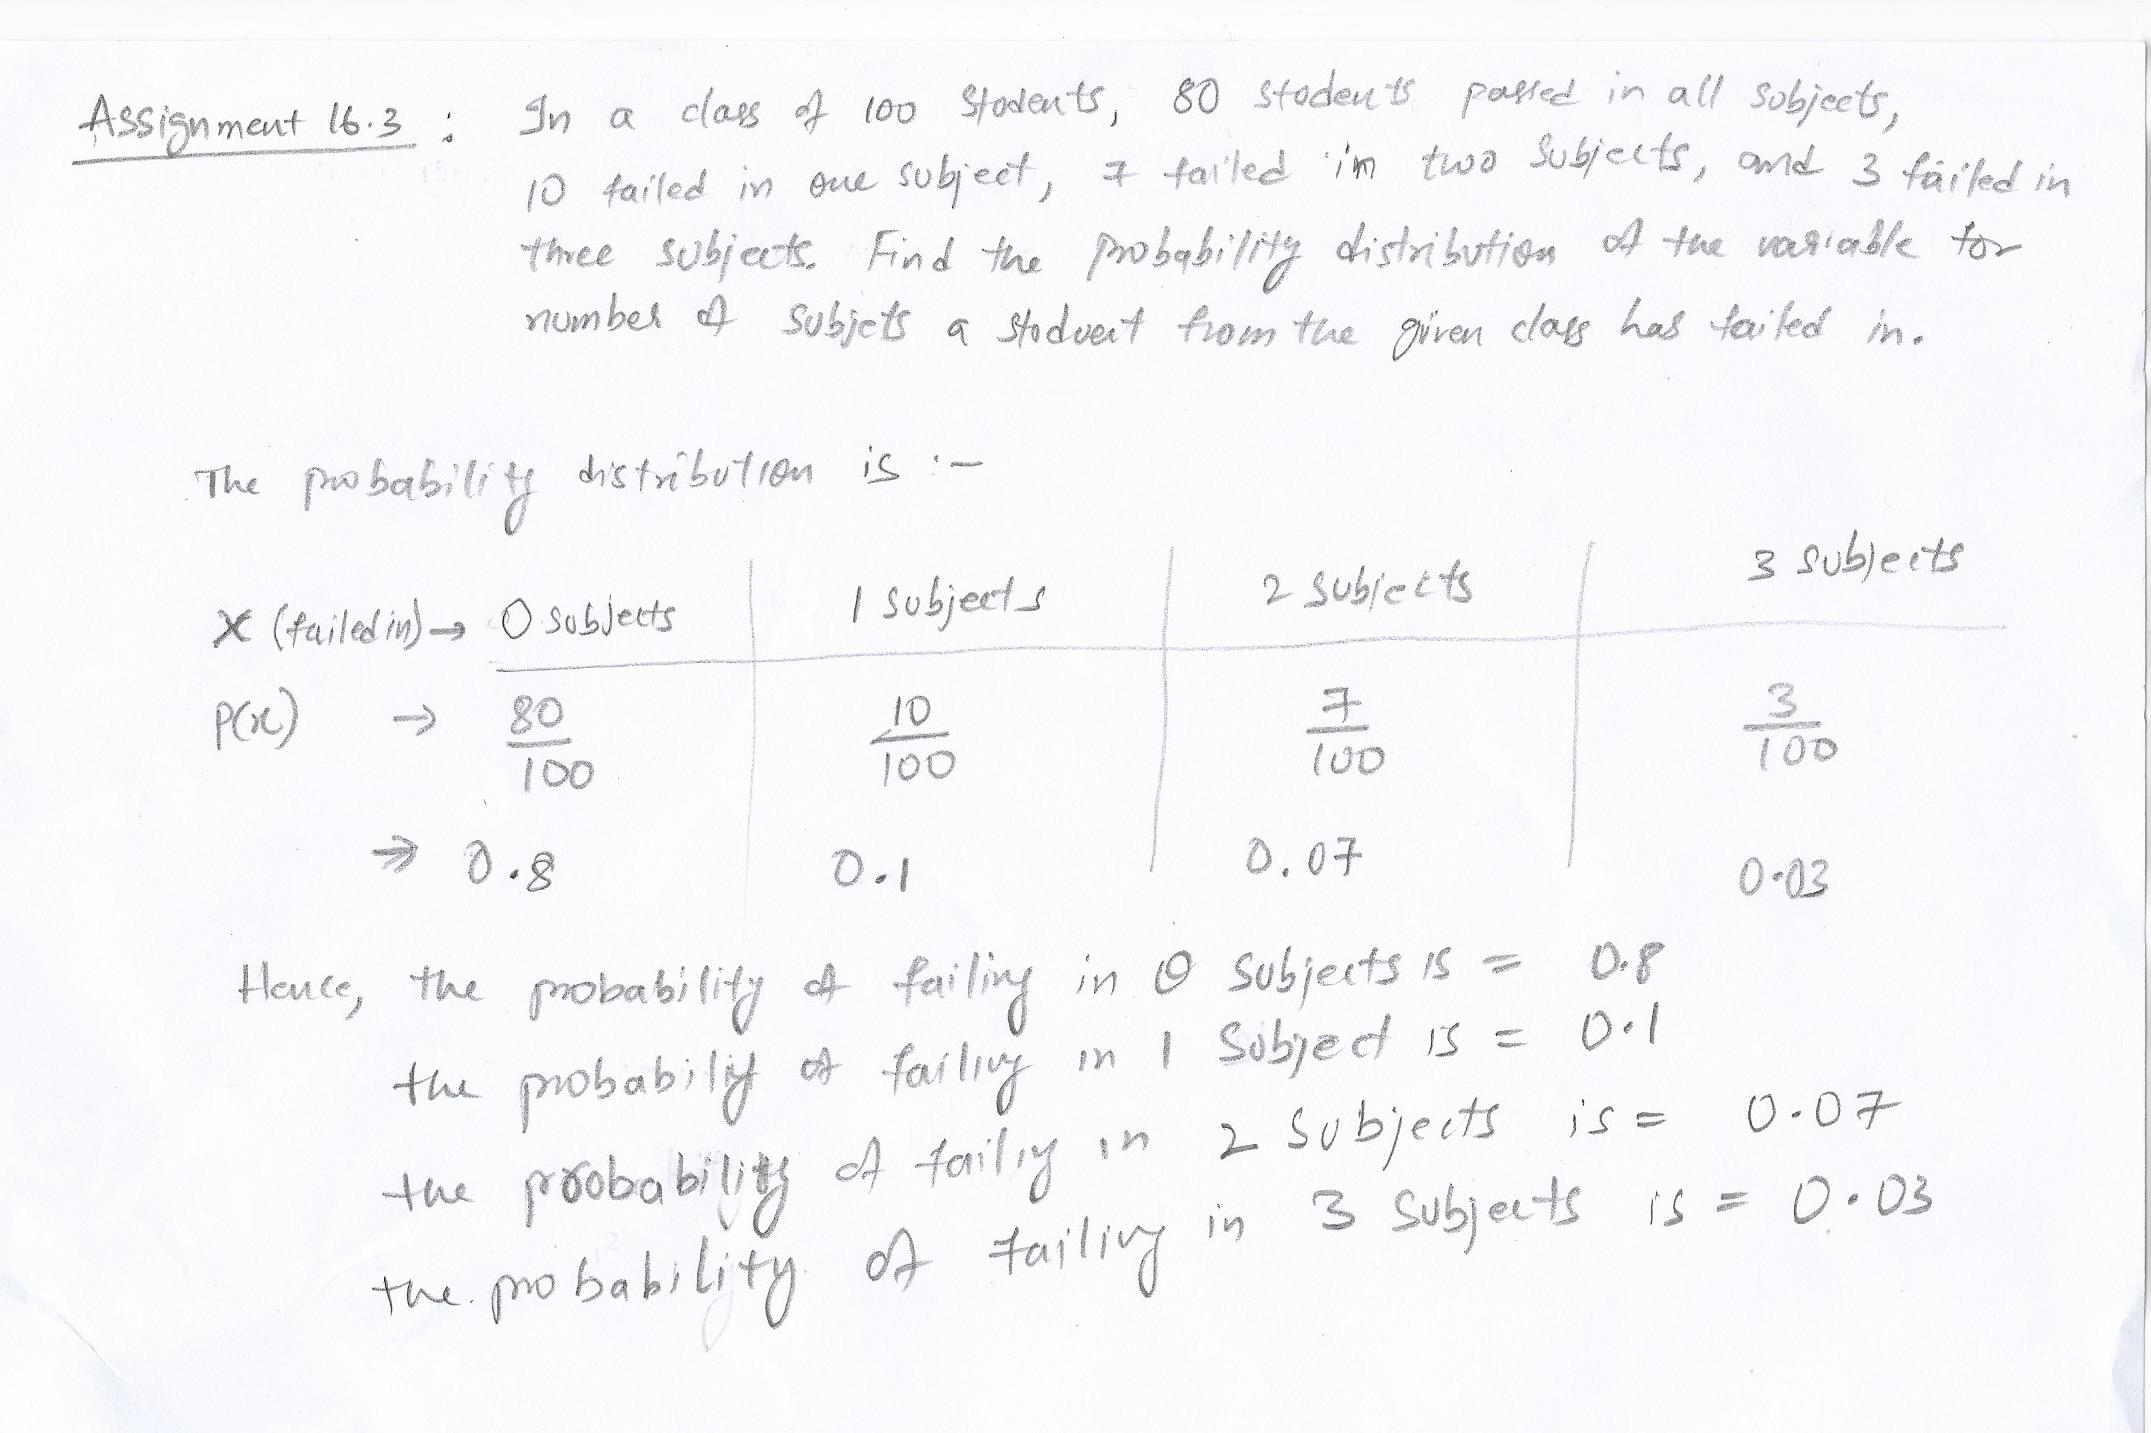 Assignment 16.3 : In a class of 100 Students, 80 students passed in all subjects,
10 failed in one subject, 7 failed in two subjects, and 3 failed in
three subjects. Find the probability distribution of the variable for
number of subjets a student from the given class has failed in.
The probability distribution is :-
X (failed in) → 0 subjects 1 subjects 2 subjects 3 subjects
P(x) → 80/100 10/100 7/100 3/100
⇒ 0.8 0.1 0.07 0.03
Hence, the probability of failing in 0 subjects is = 0.8
the probability of failing in 1 subject is = 0.1
the probability of failing in 2 subjects is = 0.07
the probability of failing in 3 subjects is = 0.03